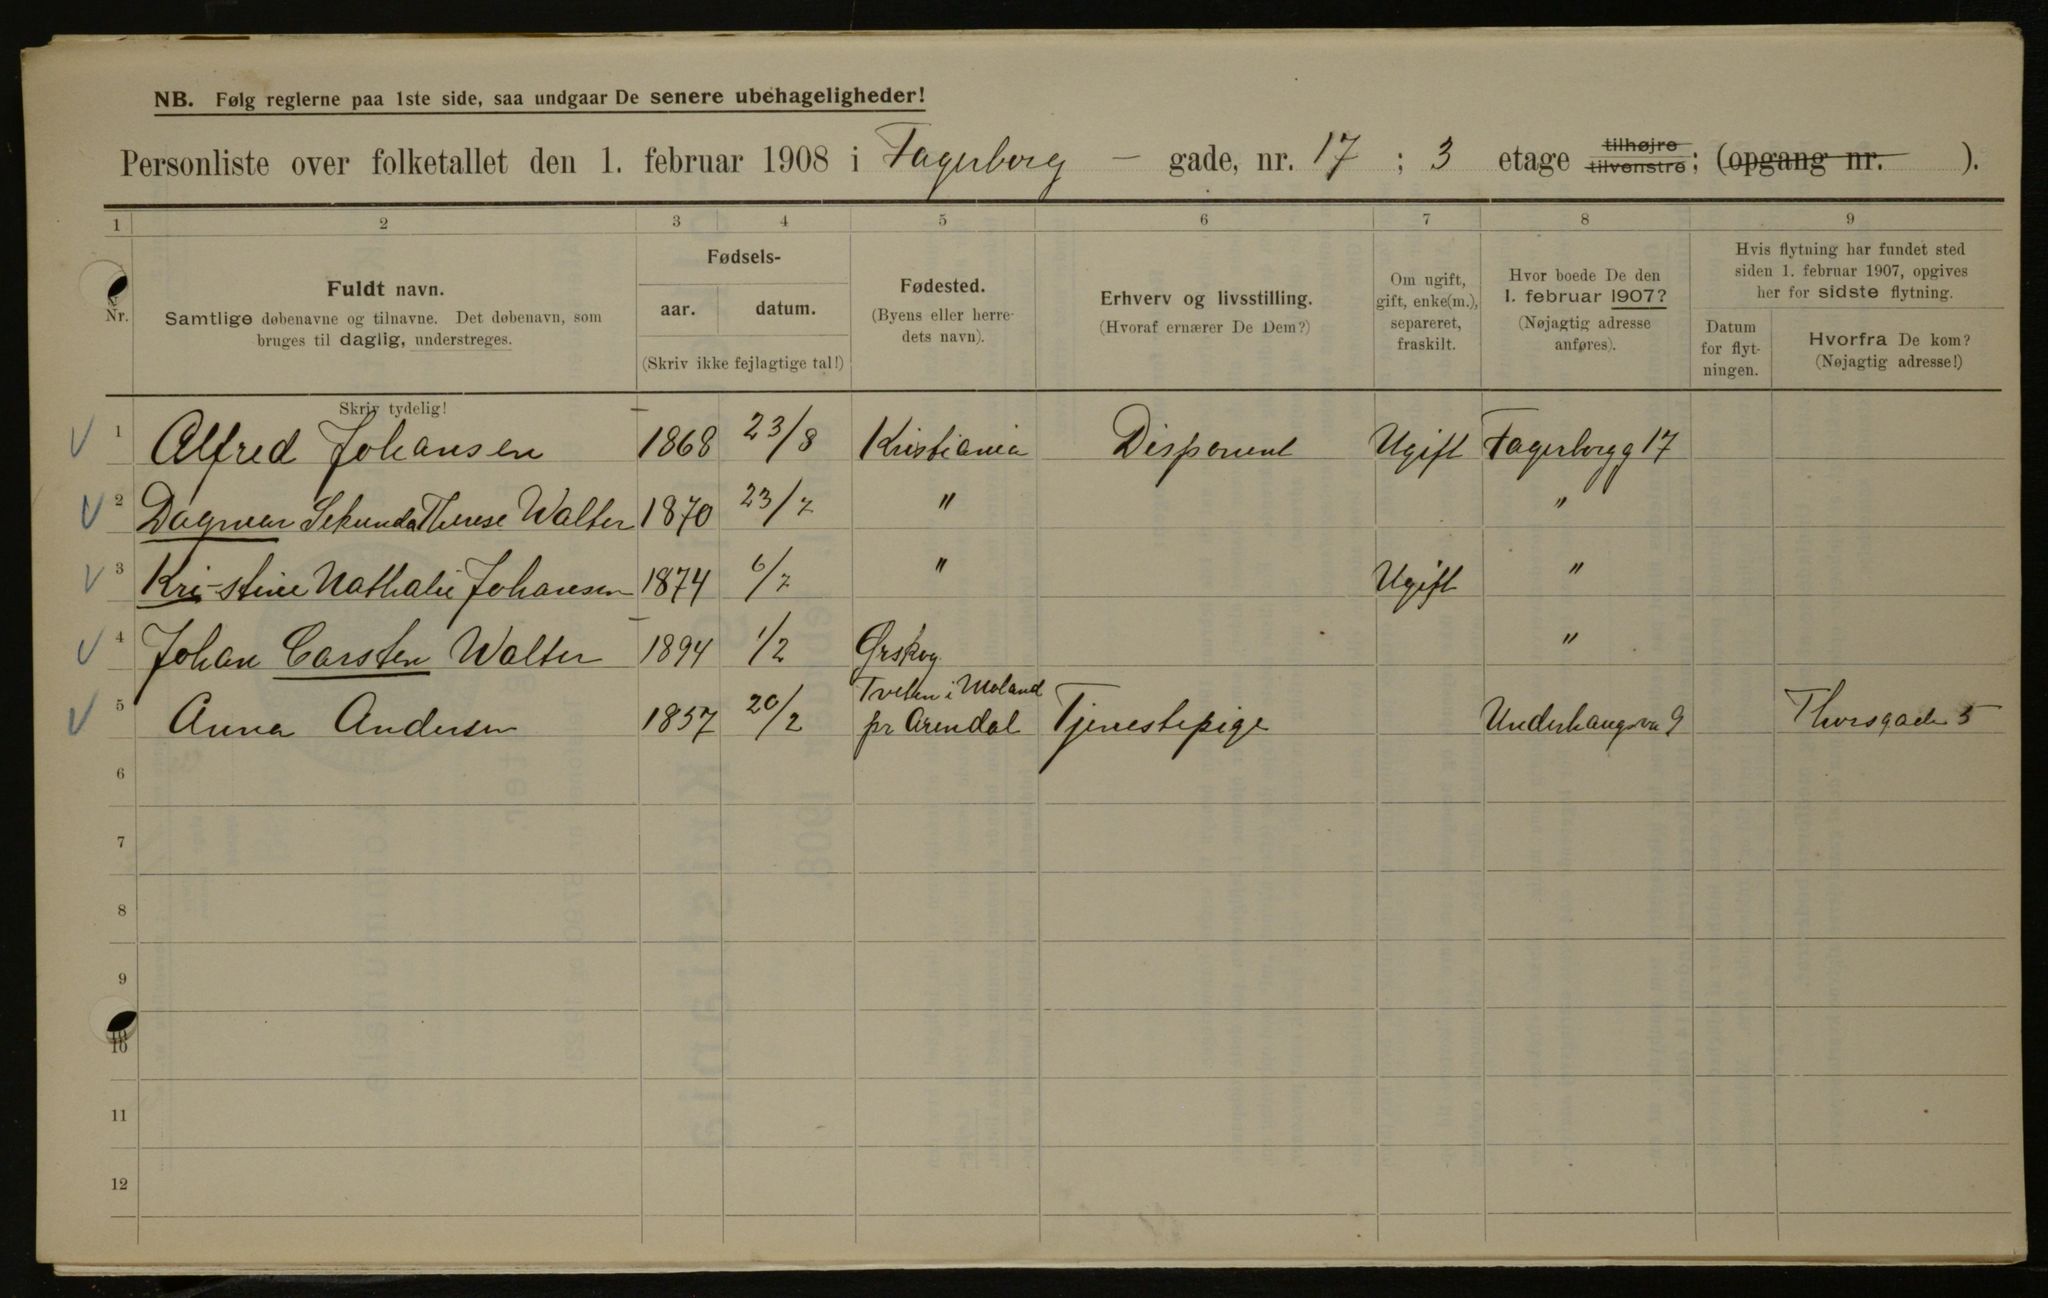 NB. Følg reglerne paa 1ste side, saa undgaar De senere ubehageligheder!
Personliste over folketallet den 1. februar 1908 i Fagerborg - gade, nr. 17 ; 3 etage tilhøjre tilvenstre; (opgang nr. ).
1 2 3 4 5 6 7 8 9
Nr.
Fuldt navn.
Samtlige døbenavne og tilnavne. Det døbenavn, som
bruges til daglig, understreges.
Skriv tydelig!
Fødsels-
aar. datum.
(Skriv ikke fejlagtige tal!)
Fødested.
(Byens eller herre-
dets navn).
Erhverv og livsstilling.
(Hvoraf ernærer De Dem?)
Om ugift,
gift, enke(m.),
separeret,
fraskilt.
Hvor boede De den
1. februar 1907?
(Nøjagtig adresse
anføres).
Hvis flytning har fundet sted
siden 1. februar 1907, opgives
her for sidste flytning.
Datum
for flyt-
ningen.
Hvorfra De kom?
(Nøjagtig adresse!)
1 Alfred Johansen 1868 23/8 Kristiania Disponent Ugift Fagerborgg 17
2 Dagmar Sekunda Therese Walter 1870 23/7 " "
3 Kri-stine Nathalie Johansen 1874 6/7 " Ugift "
4 Johan Carsten Walter 1894 1/2 Ørskog "
5 Anna Andersen 1857 20/2 Tveten i Moland
pr Arendal Tjenestepige Underhaugsvn 9 Thorsgade 5
6
7
8
9
10
11
12